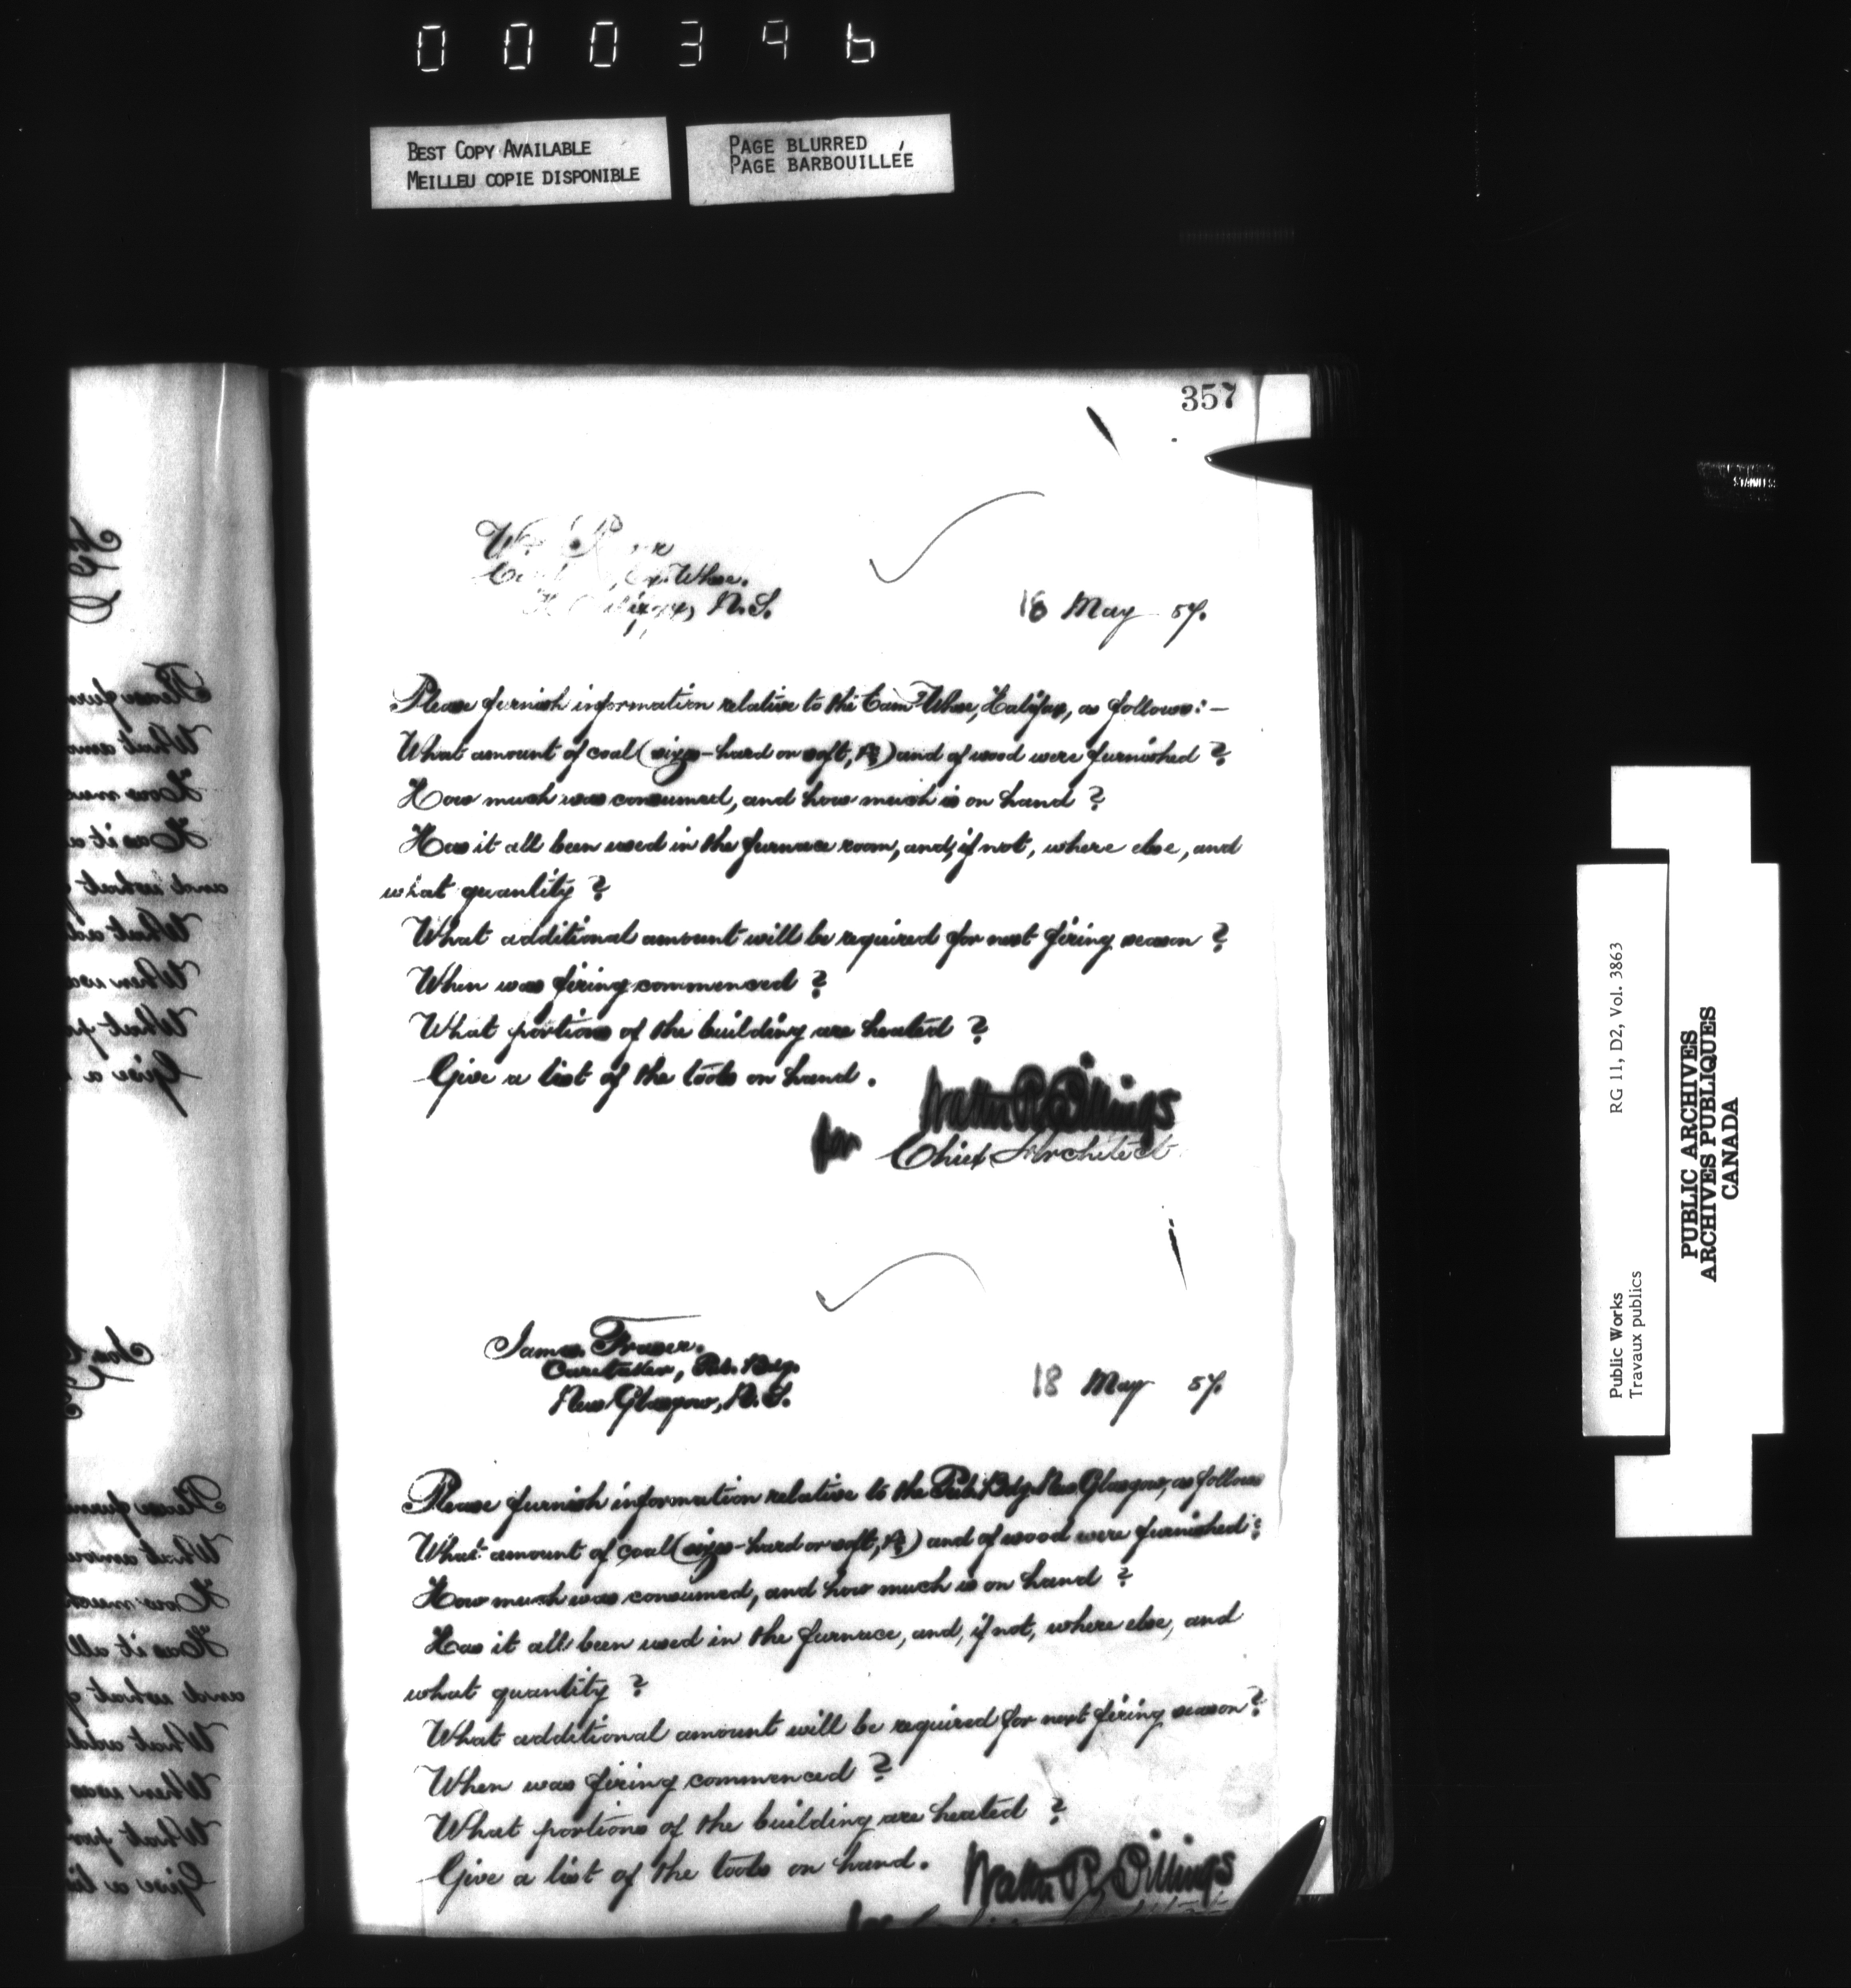 000396
BEST COPY AVAILABLE
MEILLEU COPIE DISPONIBLE
PAGE BLURRED
PAGE BARBOUILLÉE
357
Whse.
N.S.
18 May 87.
Please furnish information relative to the Exam'g Whse, Halifax, as follows:—
What amount of coal (sizes - hard or soft, &c) and of wood were furnished ?
How much was consumed, and how much is on hand ?
Has it all been used in the furnace room, and, if not, where else, and
what quantity ?
What additional amount will be required for next firing season ?
When was firing commenced ?
What portions of the building are heated ?
Give a list of the tools on hand.
Walter R Billings
for Chief Architect
James Fraser.
Caretaker, Pub. Bdg.
New Glasgow, N.S.
18 May 87.
Please furnish information relative to the Pub. Bdg. New Glasgow, as follows
What amount of coal (sizes - hard or soft, &c) and of wood were furnished ?
How much was consumed, and how much is on hand ?
Has it all been used in the furnace, and, if not, where else, and
what quantity ?
What additional amount will be required for next firing season ?
When was firing commenced ?
What portions of the building are heated ?
Give a list of the tools on hand.
Walter R Billings
for
Public Works
Travaux publics
RG 11, D2, Vol. 3863
PUBLIC ARCHIVES
ARCHIVES PUBLIQUES
CANADA